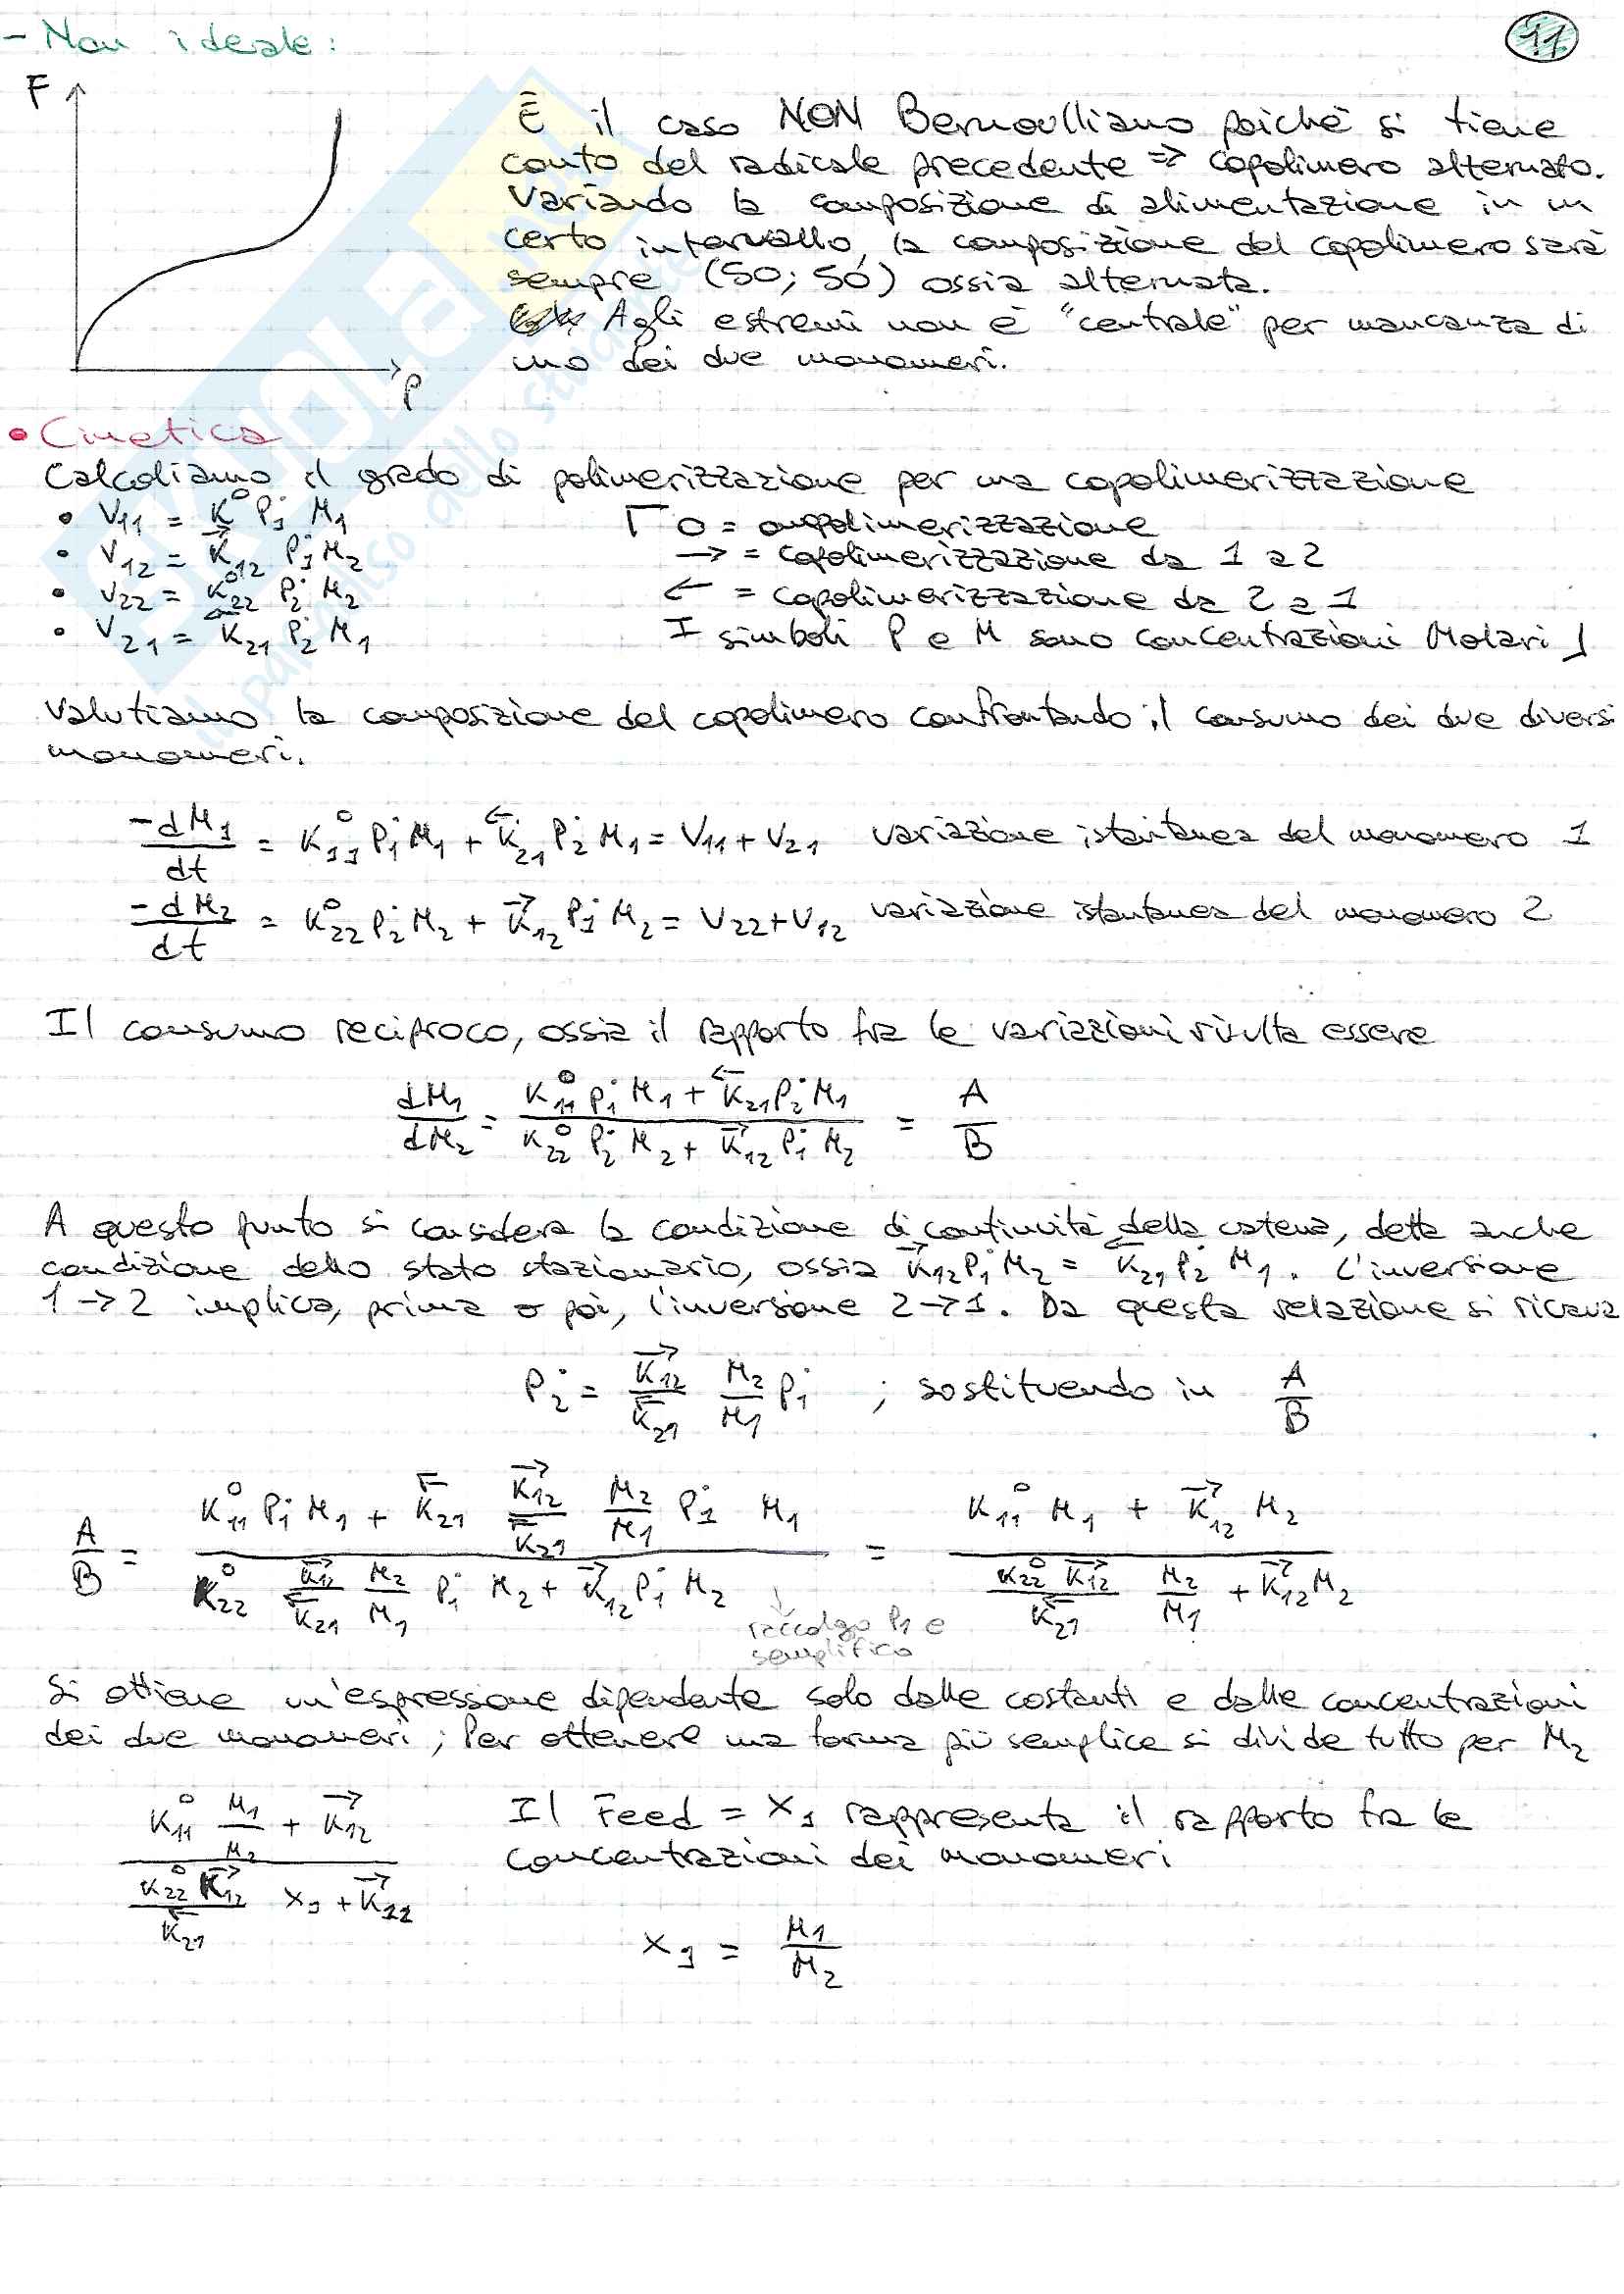 - Non ideale:
11
F
P
È il caso NON Bernoulliano poichè si tiene
conto del radicale precedente => copolimero alternato.
Variando la composizione di alimentazione in un
certo intervallo, la composizione del copolimero sarà
sempre (50; 50) ossia alternata.
Agli estremi non è "centrale" per mancanza di
uno dei due monomeri.
• Cinetica
Calcoliamo il grado di polimerizzazione per una copolimerizzazione
• V₁₁ = K° P₁· M₁
• V₁₂ = K⃗₁₂ P₁· M₂
• V₂₂ = K°₂₂ P₂· M₂
• V₂₁ = K⃖₂₁ P₂· M₁
Γ o = omopolimerizzazione
→ = copolimerizzazione da 1 a 2
← = copolimerizzazione da 2 a 1
I simboli P e M sono concentrazioni Molari ⅃
Valutiamo la composizione del copolimero confrontando il consumo dei due diversi
monomeri.
-dM₁/dt = K°₁₁ P₁· M₁ + K⃖₂₁ P₂· M₁ = V₁₁ + V₂₁ variazione istantanea del monomero 1
-dM₂/dt = K°₂₂ P₂· M₂ + K⃗₁₂ P₁· M₂ = V₂₂ + V₁₂ variazione istantanea del monomero 2
Il consumo reciproco, ossia il rapporto fra le variazioni risulta essere
dM₁/dM₂ = (K°₁₁ P₁· M₁ + K⃖₂₁ P₂· M₁)/(K°₂₂ P₂· M₂ + K⃗₁₂ P₁· M₂) = A/B
A questo punto si considera la condizione di continuità della catena, detta anche
condizione dello stato stazionario, ossia K⃗₁₂ P₁· M₂ = K⃖₂₁ P₂· M₁. L'inversione
1→2 implica, prima o poi, l'inversione 2→1. Da questa relazione si ricava
P₂· = K⃗₁₂/K⃖₂₁ M₂/M₁ P₁· ; sostituendo in A/B
A/B = (K°₁₁ P₁· M₁ + K⃖₂₁ K⃗₁₂/K⃖₂₁ M₂/M₁ P₁· M₁)/(K°₂₂ K⃗₁₂/K⃖₂₁ M₂/M₁ P₁· M₂ + K⃗₁₂ P₁· M₂) = (K°₁₁ M₁ + K⃗₁₂ M₂)/(K°₂₂ K⃗₁₂/K⃖₂₁ M₂/M₁ + K⃗₁₂ M₂)
raccolgo P₁ e
semplifico
Si ottiene un'espressione dipendente solo dalle costanti e dalle concentrazioni
dei due monomeri; Per ottenere una forma più semplice si divide tutto per M₂
(K°₁₁ M₁/M₂ + K⃗₁₂)/(K°₂₂ K⃗₁₂/K⃖₂₁ x₁ + K⃗₁₂)
Il Feed = x₁ rappresenta il rapporto fra le
concentrazioni dei monomeri
x₁ = M₁/M₂